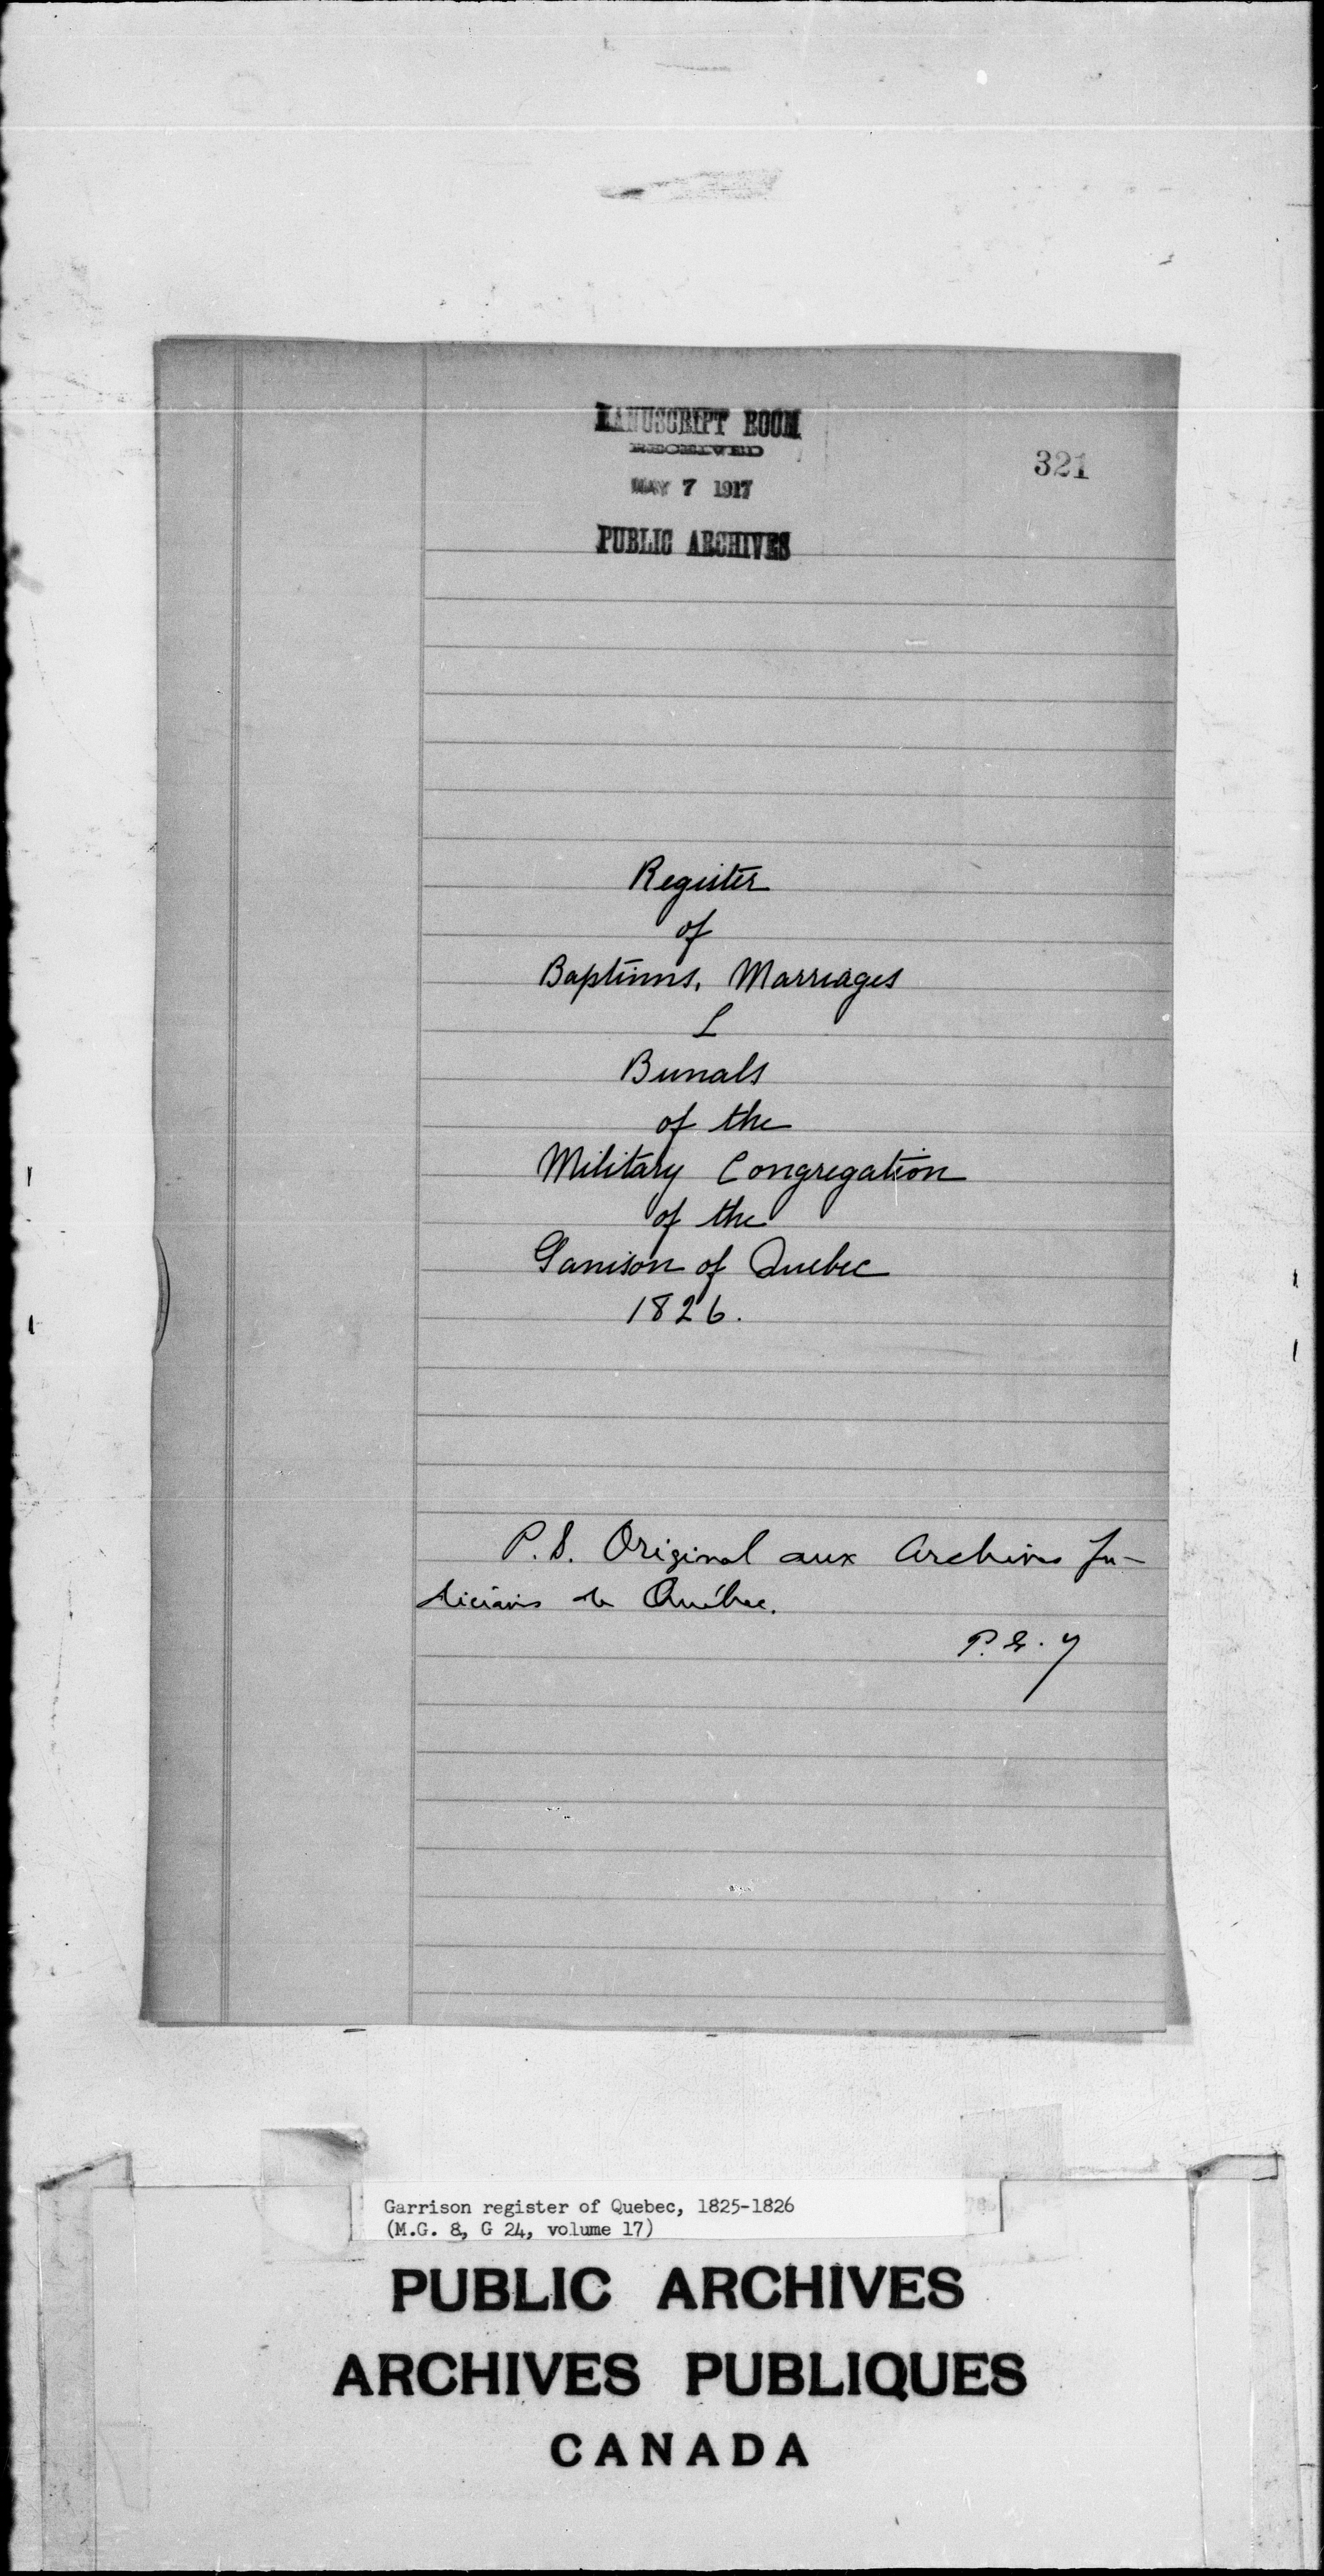 MANUSCRIPT ROOM
RECEIVED
MAY 7 1917
PUBLIC ARCHIVES
321
Register
of
Baptisms, Marriages
&
Burials
of the
Military Congregation
of the
Garrison of Quebec
1826.
P.S. Original aux Archives Ju-
diciaires de Québec.
Garrison register of Quebec, 1825-1826
(M.G. 8, G 24, volume 17)
PUBLIC ARCHIVES
ARCHIVES PUBLIQUES
CANADA